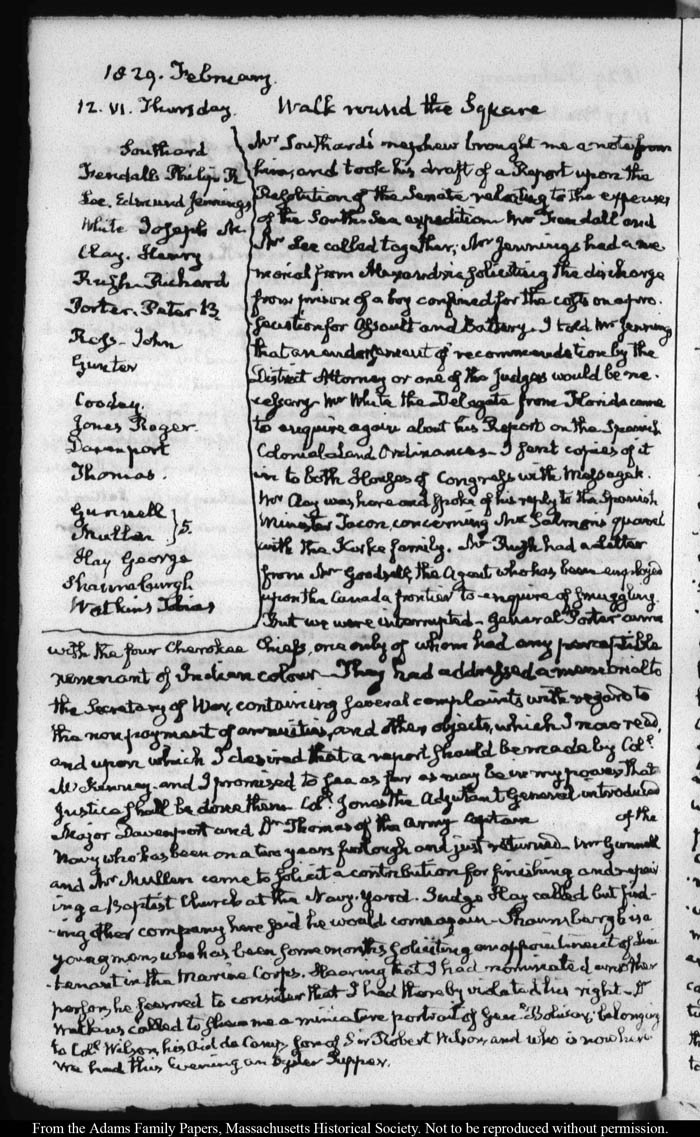 1829. February.
12. VI. Thursday. Walk round the Square
Southard
Kendall Philip R
Lee. Edmund Jennings
White Joseph M.
Clay. Henry
Rush Richard
Porter. Peter B
Ross. John
Gunter
Coodey.
Jones Roger.
Davenport
Thomas.
Gunnell
Mullen } 5.
Hay George
Shaumburgh.
Watkins Tobias
Mr Southard's nephew brought me a note from
him, and took his draft of a Report upon the
Resolution of the Senate relating to the expenses
of the South Sea expedition Mr Kendall and
Mr Lee called together; Mr Jennings had a me
morial from Alexandria soliciting the discharge
from prison of a boy confined for the costs on a pro.
secution for Assault and Battery. I told Mr Jennings
that an endorsement of recommendation by the
District Attorney or one of the Judges would be ne.
cessary. Mr White the Delegate from Florida came
to enquire again about his Report on the Spanish
Colonial Land Ordinances. I sent copies of it
in to both Houses of Congress with Messages.
Mr Clay was here and spoke of his reply to the Spanish
Minister Tacon, concerning Mr Salmons quarrel
with the Kerke family. Mr Rush had a Letter
from Mr Goodsell, the Agent who has been employed
upon the Canada frontier to enquire of smuggling.
But we were interrupted. General Porter came
with the four Cherokee Chiefs, one only of whom had any perceptible
remnant of Indian colour. They had addressed a memorial to
the Secretary of War, containing several complaints with regard to
the nonpayment of annuities, and other objects, which I now read,
and upon which I desired that a report should be made by Coll.
McKenney. and I promised to see as far as may be in my power, that
justice shall be done them Coll. Jones the Adjutant General introduced
Major Davenport and Dr Thomas of the Army Captain of the
Navy who has been on a two years furlough and just returned. Mr Gunnell
and Mr Mullen came to solicit a contribution for finishing and repair
ing a Baptist Church at the Navy-Yard. Judge Hay called but find-
-ing other company here said he would come again. Shaumburg is a
young man, who has been some months soliciting an appointment of Lieu
-tenant in the Marine Corps. Hearing that I had nominated another
person, he seemed to consider that I had thereby violated his right. Dr
Watkins called to shew me a miniature portrait of Genl. Bolivar; belonging
to Coll. Wilson, his Aid de Camp, son of Sir Robert Wilson, and who is now here
We had this Evening an Oyster Supper.
From the Adams Family Papers, Massachusetts Historical Society. Not to be reproduced without permission.